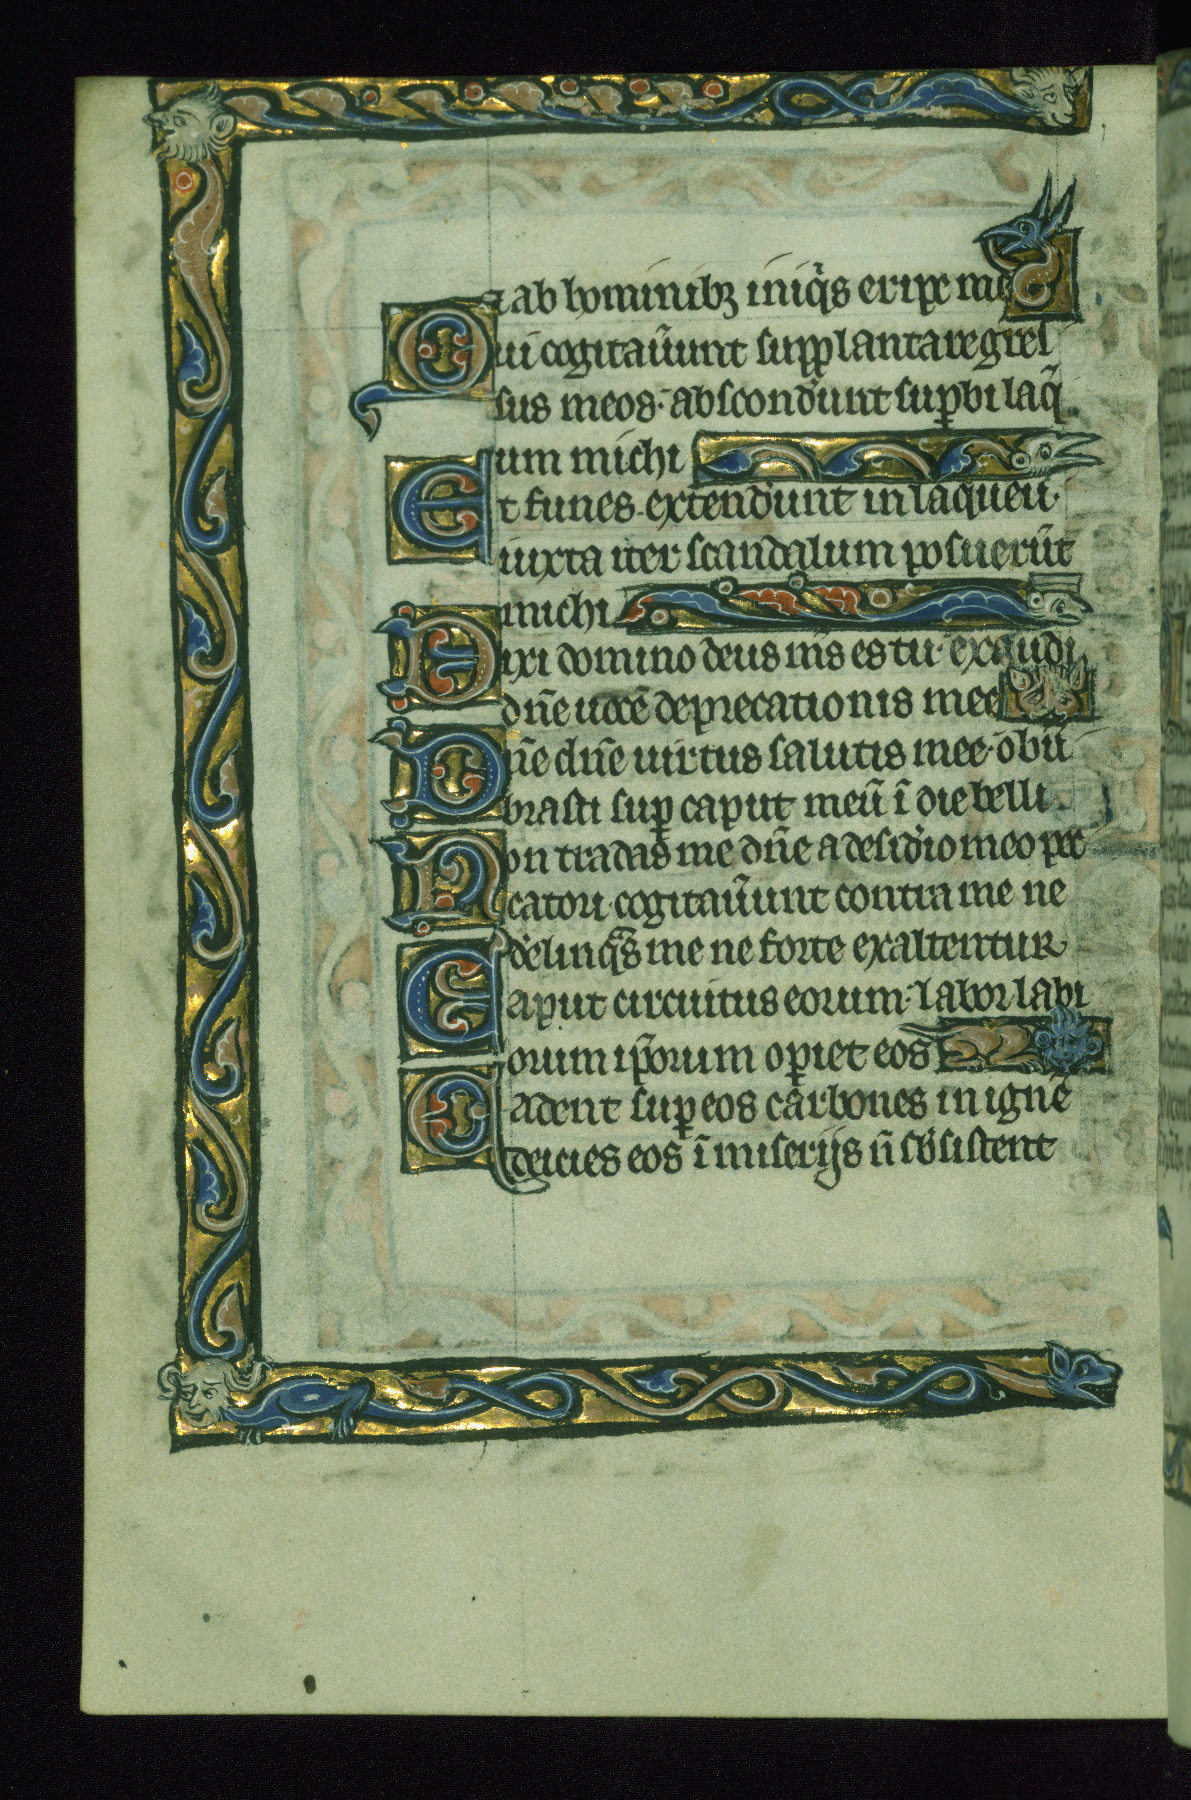 & ab hominibꝫ iniqͥs eripe me
Qui cogitaũunt supplantare gres
sus meos· absconđunt suꝑbi laq̃
um michi
Et funes extenđunt in laqueũ·
iuxta iter scandalum posuerũt
michi
Dixi domino deus m̃s es tu· exaudi
dñe uocẽ deprecationis mee
Dñe dñe uirtus salutis mee· obũ
brasti suꝑ caput meũ ĩ die belli
Non tradas me dñe a desiđio meo pec
catori· cogitaũunt contra me ne
đelinqᷓs me ne forte exaltentur
Caput circuitus eorum· labor labi
orum ip̃orum oꝑiet eos
Cadent suꝑ eos carbones in ignẽ
deicies eos ĩ miserijs ñ sƀsistent